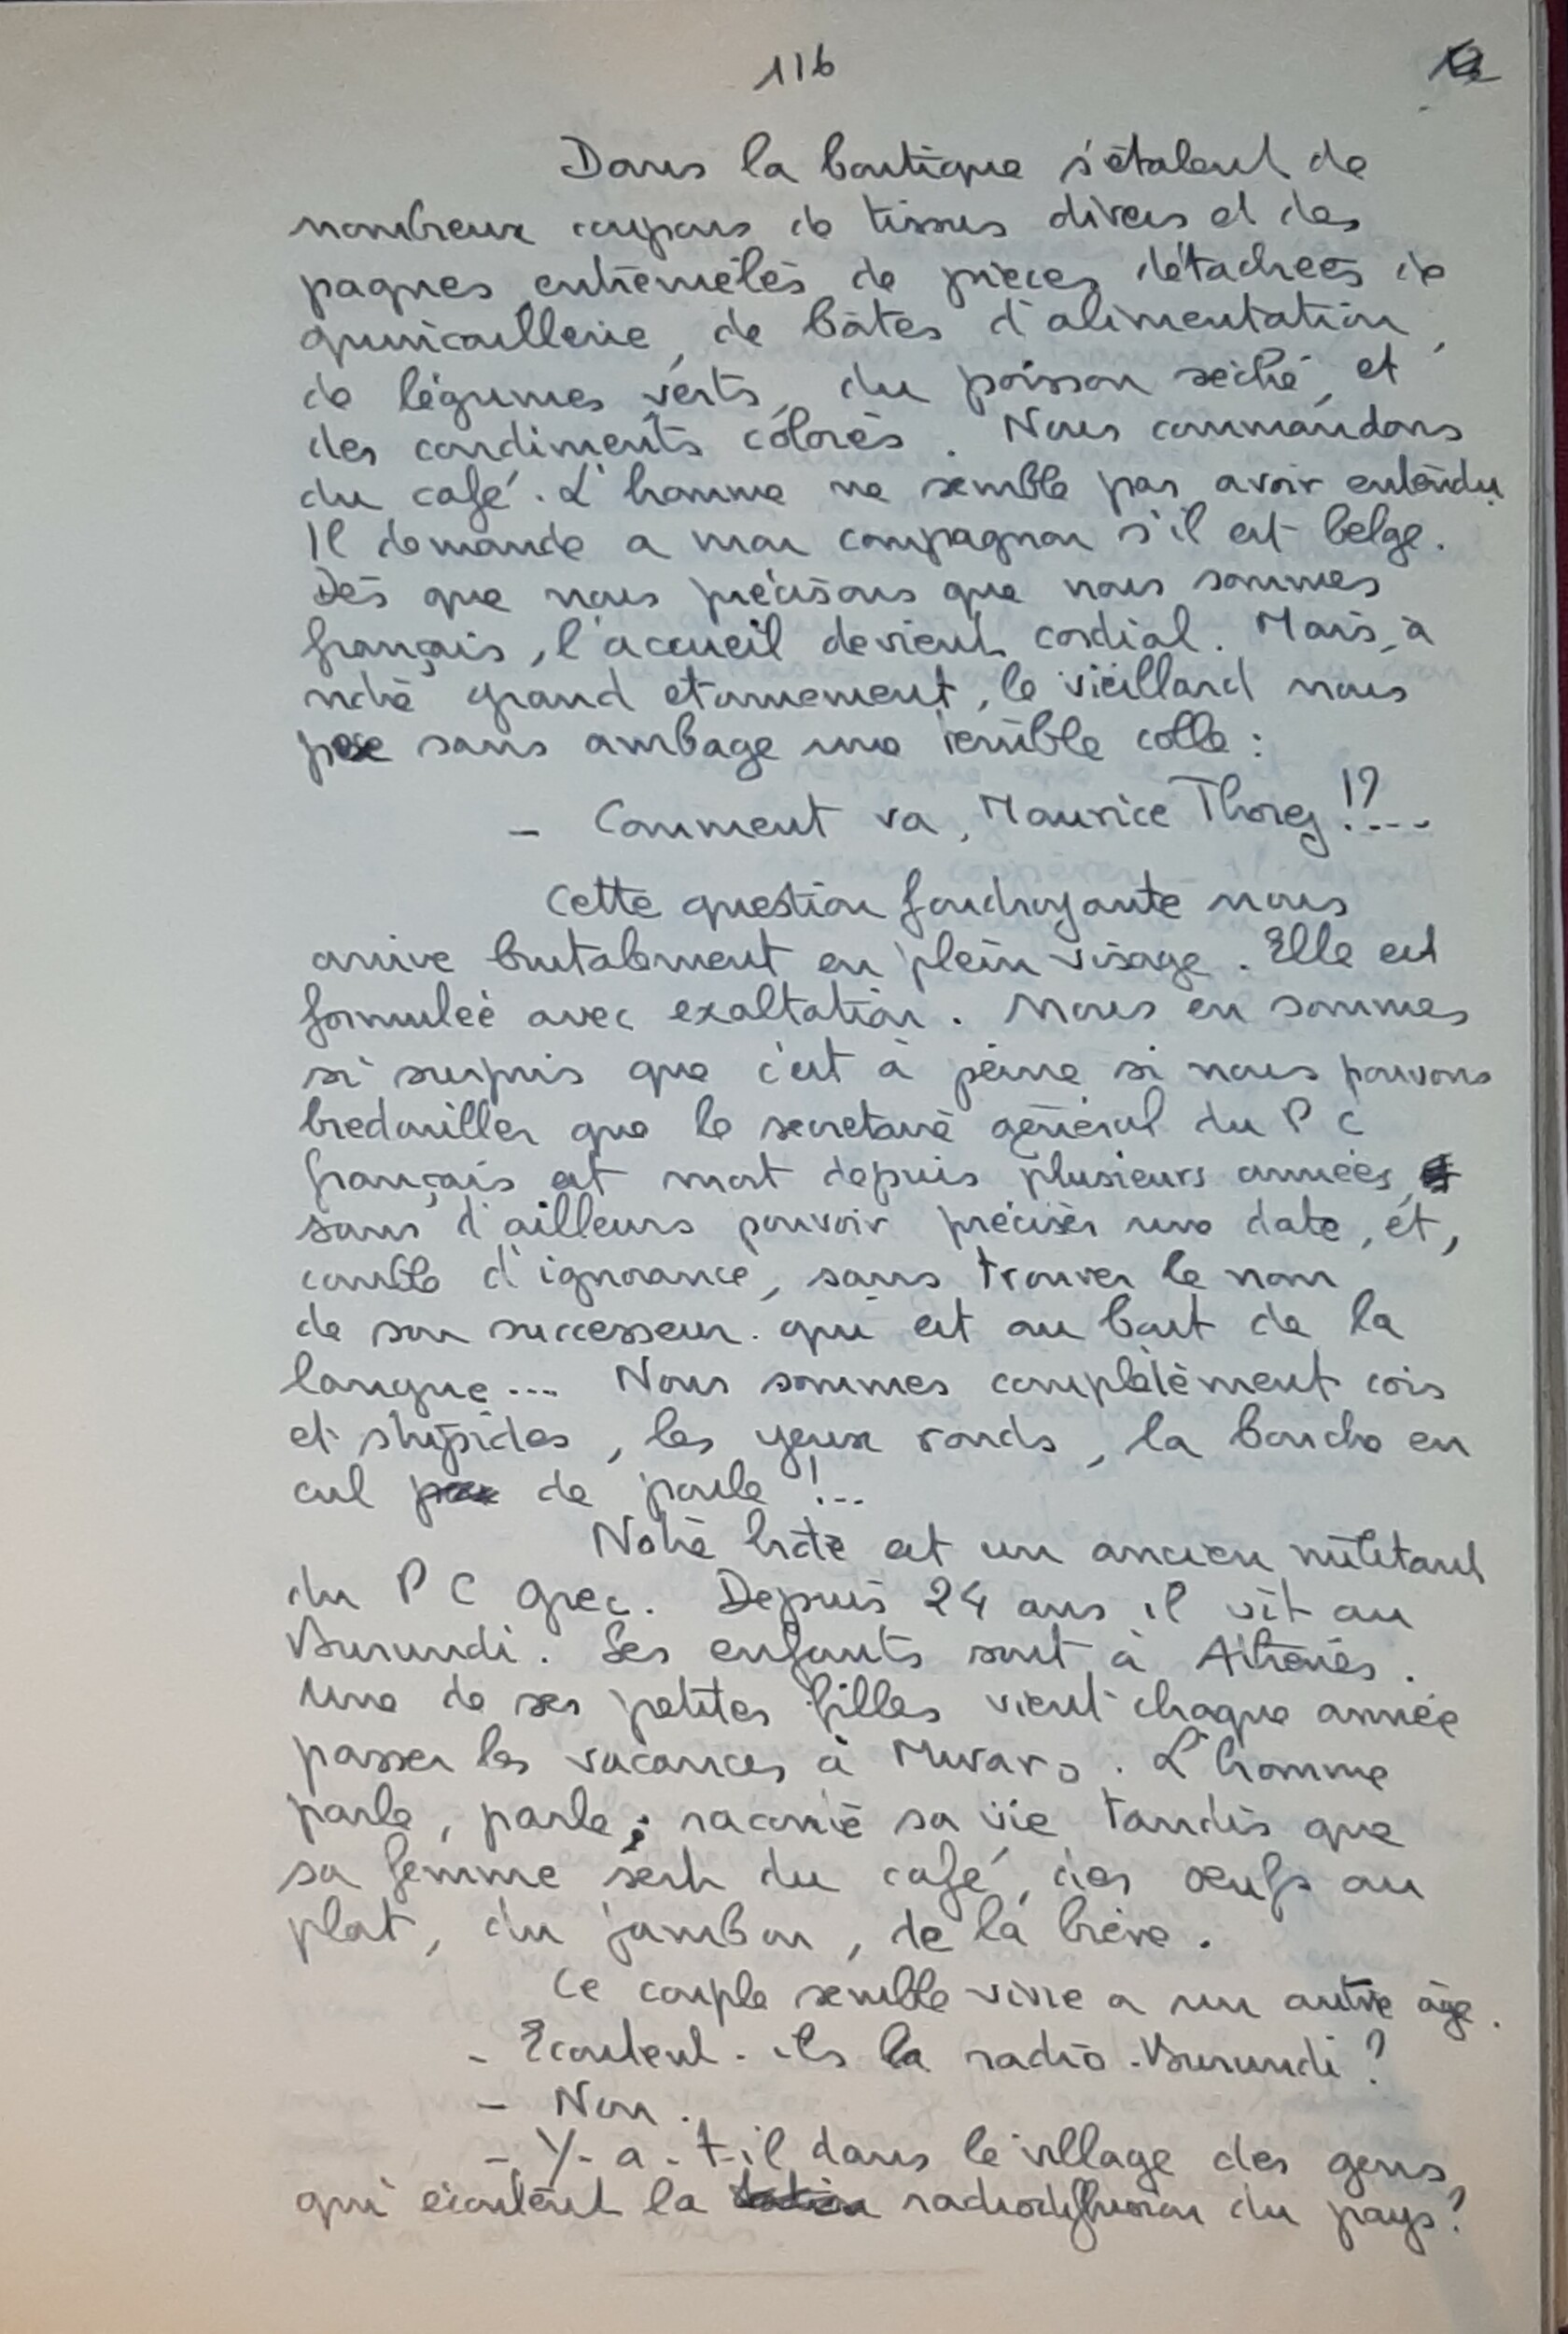 116
Dans la boutique s'étalent de
nombreux coupons de tissus divers et des
pagnes entremêlés de pièces détachées de
quincaillerie, de bôites d'alimentation,
de légumes verts, du poisson séché, et
des condiments colorés. Nous commandons
du café. L'homme ne semble pas avoir entendu.
Il demande a mon compagnon s'il est belge.
Dès que nous précisons que nous sommes
français, l'accueil devient cordial. Mais, à
notre grand etonnement, le vieillard nous
pose sans ambage une terrible colle :
- Comment va, Maurice Thorez !?...
Cette question foudroyante nous
arrive brutalement en plein visage. Elle est
formulée avec exaltation. Nous en sommes
si surpris que c'est à peine si nous pouvons
bredouiller que le secretaire général du P C
français est mort depuis plusieurs années,
sans d'ailleurs pouvoir préciser une date, et,
comble d'ignorance, sans trouver le nom
de son successeur. qui est au bout de la
langue... Nous sommes complètement cois
et stupides, les yeux ronds, la bouche en
cul de poule !...
Notre hôte est un ancien militant
du P C Grec. Depuis 24 ans il vit au
Burundi. Ses enfants sont à Athènes.
Une de ses petites filles vient chaque année
passer les vacances à Muvaro. L'homme
parle, parle; raconte sa vie tandis que
sa femme sert du café, des oeufs au
plat, du jambon, de la bière.
Ce couple semble vivre a un autre âge.
- Ecoutent-ils la radio-Burundi ?
- Non.
- Y-a-t-il dans le village des gens
qui écoutent la radiodiffusion du pays?